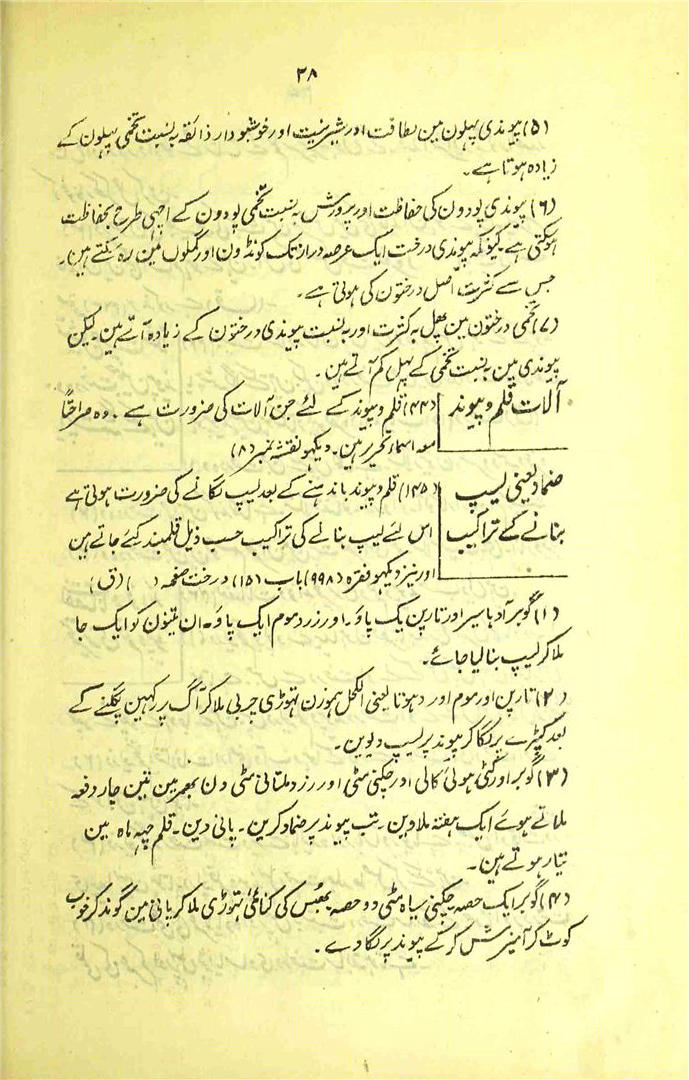 ۳۸
(۵) پیوندی پہلون مین لطافت اور شیرینیت اور خوشبودار ذائقہ بہ نسبت تخمی پہلون کے
زیادہ ہوتا ہے۔
(۶) پیوندی پودون کی حفاظت اور پرورش بہ نسبت تخمی پودون کے اچہی طرح بحفاظت
ہوسکتی ہے۔ کیونکہ پیوندی درخت ایک عرصہ دراز تک کونڈون اور گملوں مین رہ سکتے ہین۔
جس سے کثرت اصل درختون کی ہوتی ہے۔
(۷) تخمی درختون مین پھل بہ کثرت اور بہ نسبت پیوندی درختون کے زیادہ آتے ہین۔ لیکن
پیوندی مین بہ نسبت تخمی کے پہل کم آتے ہین۔
آلات قلم و پیوند
(۴۴) قلم و پیوند کے لئے جن آلات کی ضرورت ہے۔ وہ صراحتاً
معہ اسماء تحریر ہین۔ دیکہو نقشہ نمبر (۸)
ضماد یعنی لیپ
بنانے کے تراکیب
(۱۴۵) قلم و پیوند باندہنے کے بعد لیپ لگانے کی ضرورت ہوتی ہے
اس لئے لیپ بنانے کی تراکیب حسب ذیل قلمبند کئے جاتے ہین
اور نیز دیکہو فقرہ (۹۹۸) باب (۱۵) درخت صفحہ ( ) (ق)
(۱) گوبر آدہا سیر اور تارپین یک پاؤ۔ اور زرد موم ایک پاؤ۔ ان تینون کو ایک جا
ملا کر لیپ بنا لیا جائے۔
(۲) تارپن اور موم اور دہونا یعنی الکحل ہموزن تہوڑی چربی ملا کر آگ پر رکہین پگلنے کے
بعد کپڑے پر لگا کر پیوند پر لیپ دیوین۔
(۳) گوبر اور کٹی ہوئی کالی اور چکنی مٹی اور زرد ملتانی مٹی دن بھر مین تین چار دفعہ
ملاتے ہوئے ایک ہفتہ ملاوین۔ تب پیوند پر ضماد کرین۔ پانی دین۔ قلم چہہ ماہ مین
تیار ہوتے ہین۔
(۴) گوبر ایک حصہ چکنی سیاہ مٹی دو حصہ بھُس کی تہوڑی ملا کر پانی مین گوند کر خوب
کوٹ کر آمیزش کر کے پیوند پر لگا دے۔